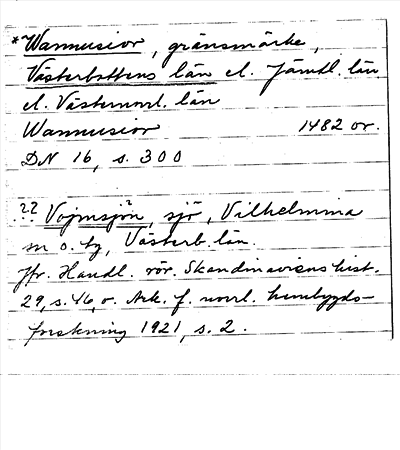 *Wannusior, gränsmärke,
Västerbottens län el. Jämtl. län
el. Västernorrl. län
Wannusior 1482 or.
DN 16, s. 300
?? Vojmsjön?, sjö, Vilhelmina
sn o. tg, Västerb. län.
Jfr. Handl. rör. Skandinaviens hist.
29, s. 46, o. Ark. f. norrl. hembygds-
forskning 1921, s. 2.